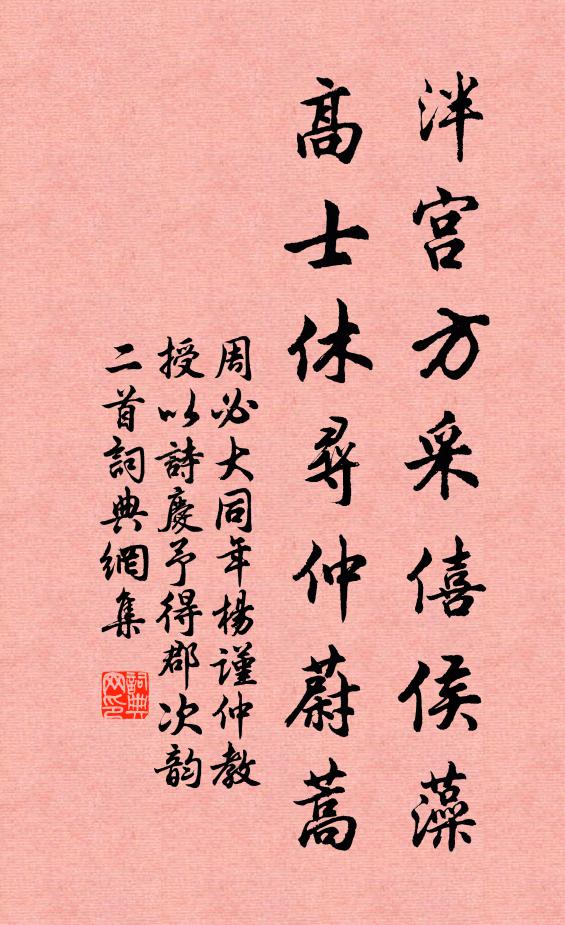 泮宫方采僖侯藻
高士休尋仲蔚蒿
周必大同年楊謹仲教
授以詩慶予得郡次韵
二首詞典網集
詞典網印